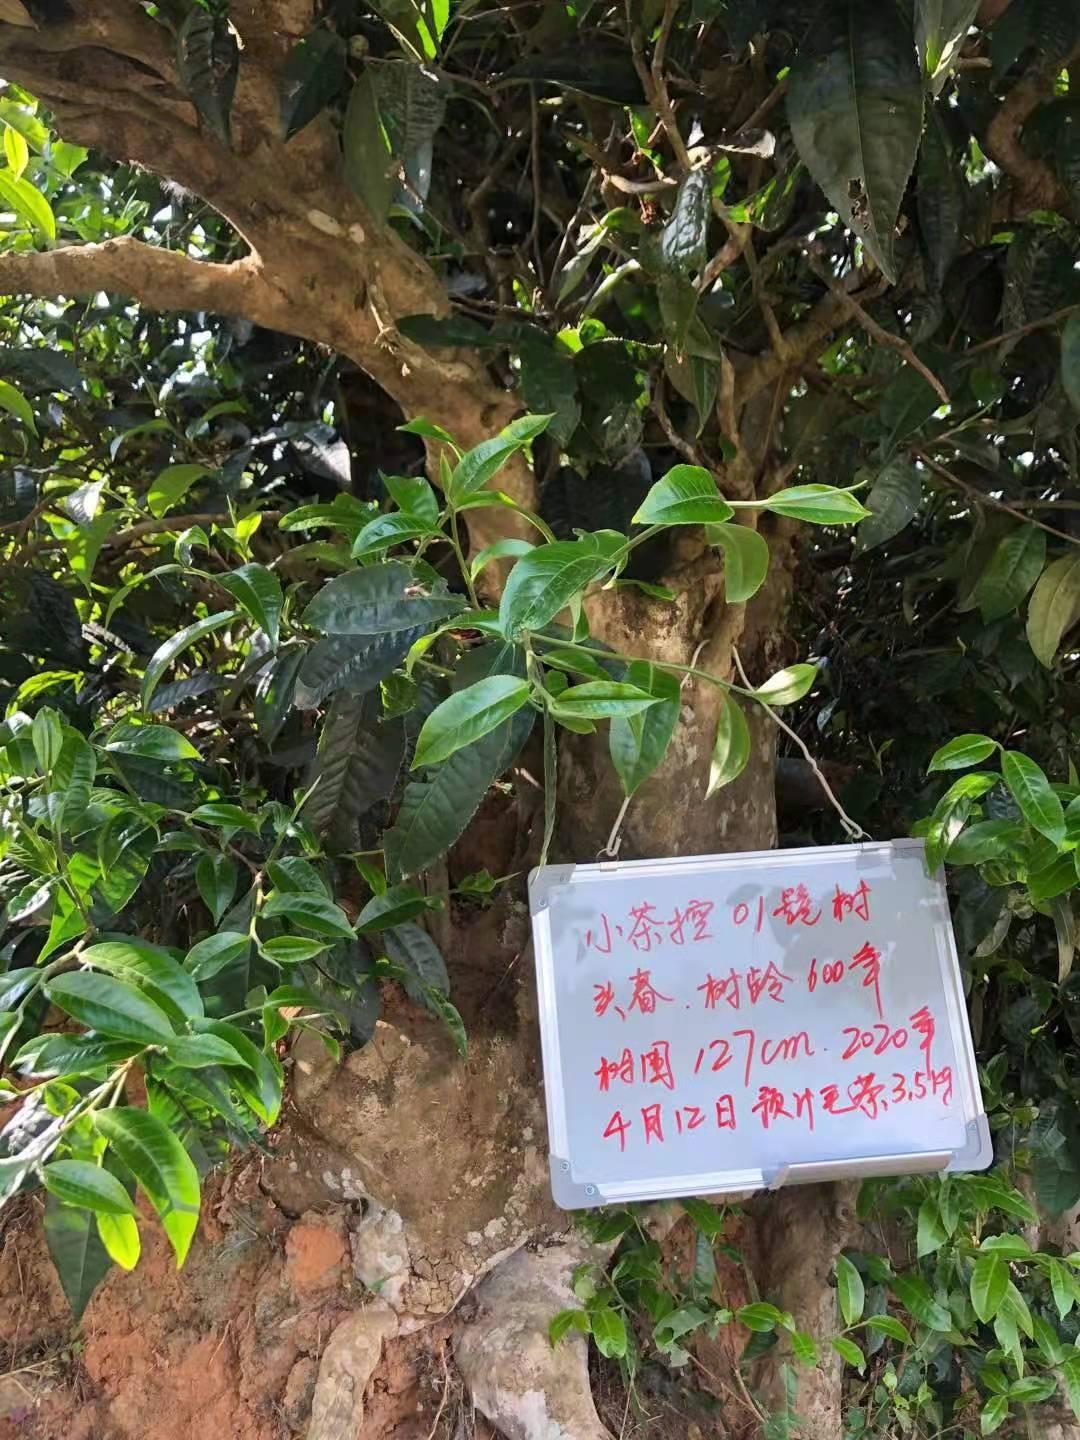 小茶控 01號树
头春.树龄600年
树围 127cm. 2020年
4月12日 预计毛茶3.5kg